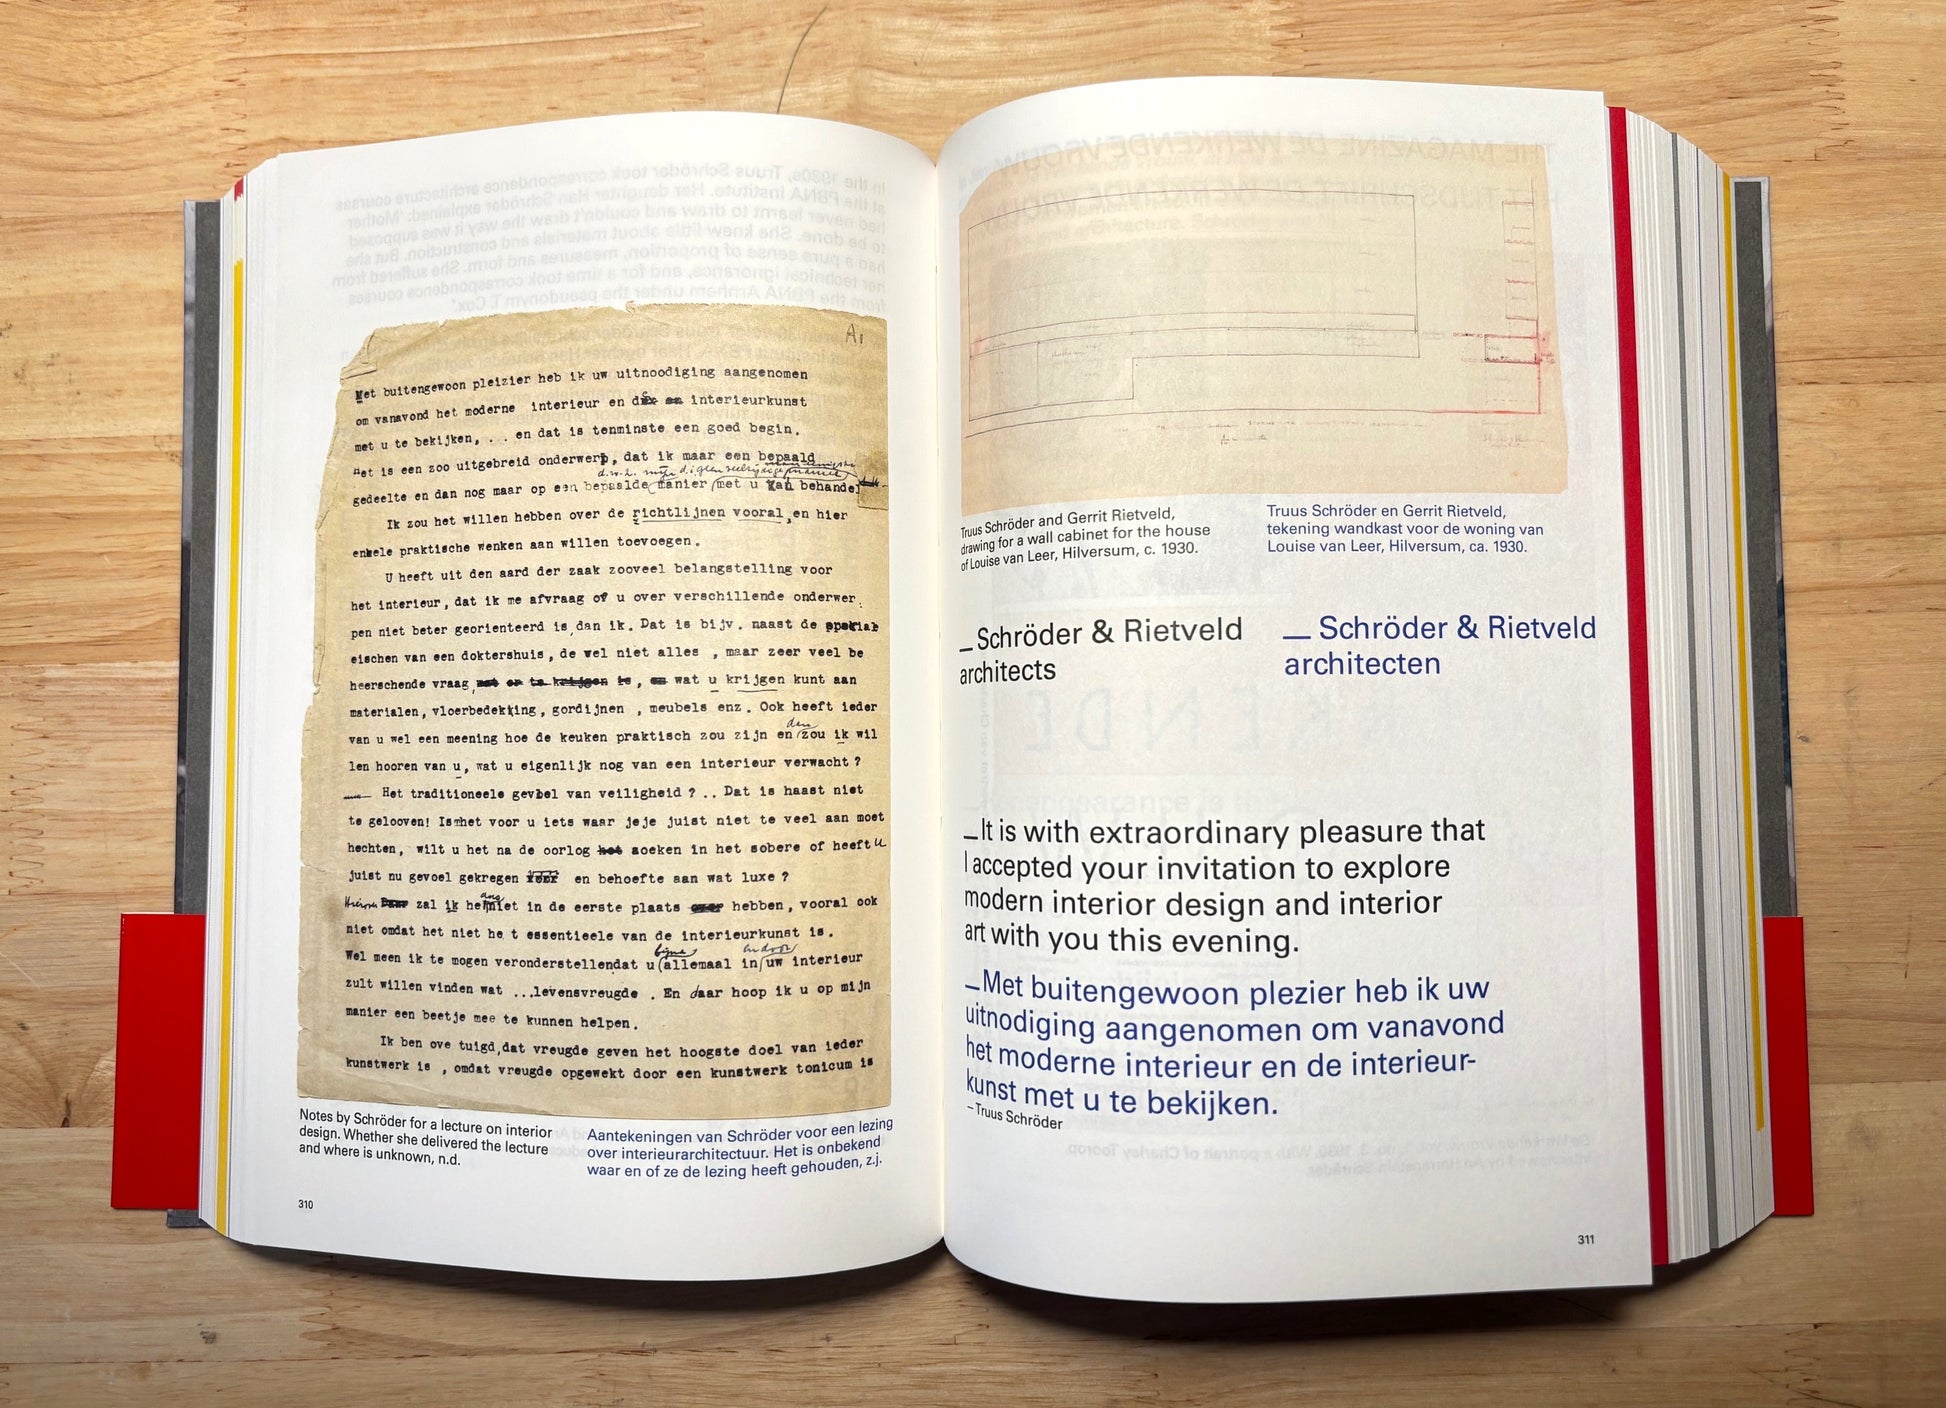 A1
Met buitengewoon pleizier heb ik uw uitnoodiging aangenomen
om vanavond het moderne interieur en interieurkunst
met u te bekijken, ... en dat is tenminste een goed begin.
Het is een zoo uitgebreid onderwerp, dat ik maar een bepaald
d.w.z. mijn
gedeelte en dan nog maar op een bepaalde manier met u kan behandel
Ik zou het willen hebben over de richtlijnen vooral, en hier
enkele praktische wenken aan willen toevoegen.
U heeft uit den aard der zaak zooveel belangstelling voor
het interieur, dat ik me afvraag of u over verschillende onderwer
pen niet beter georienteerd is, dan ik. Dat is bijv. naast de speciale
eischen van een doktershuis, de wel niet alles , maar zeer veel be
heerschende vraag wat u krijgen kunt aan
materialen, vloerbedekking, gordijnen , meubels enz. Ook heeft ieder
dan
van u wel een meening hoe de keuken praktisch zou zijn en zou ik wil
len hooren van u, wat u eigenlijk nog van een interieur verwacht?
Het traditioneele gevoel van veiligheid ? .. Dat is haast niet
te gelooven! Is het voor u iets waar jeje juist niet te veel aan moet
hechten, wilt u het na de oorlog het zoeken in het sobere of heeft u
juist nu gevoel gekregen voor en behoefte aan wat luxe ?
Hierover zal ik het niet in de eerste plaats over hebben, vooral ook
niet omdat het niet he t essentieele van de interieurkunst is.
Wel meen ik te mogen veronderstellendat u allemaal in uw interieur
zult willen vinden wat ...levensvreugde . En daar hoop ik u op mijn
manier een beetje mee te kunnen helpen.
Ik ben ove tuigd, dat vreugde geven het hoogste doel van ieder
kunstwerk is , omdat vreugde opgewekt door een kunstwerk tonicum is
Notes by Schröder for a lecture on interior
design. Whether she delivered the lecture
and where is unknown, n.d.
Aantekeningen van Schröder voor een lezing
over interieurarchitectuur. Het is onbekend
waar en of ze de lezing heeft gehouden, z.j.
310
Truus Schröder and Gerrit Rietveld,
drawing for a wall cabinet for the house
of Louise van Leer, Hilversum, c. 1930.
Truus Schröder en Gerrit Rietveld,
tekening wandkast voor de woning van
Louise van Leer, Hilversum, ca. 1930.
_Schröder & Rietveld
architects
_ Schröder & Rietveld
architecten
_It is with extraordinary pleasure that
I accepted your invitation to explore
modern interior design and interior
art with you this evening.
_Met buitengewoon plezier heb ik uw
uitnodiging aangenomen om vanavond
het moderne interieur en de interieur-
kunst met u te bekijken.
– Truus Schröder
311